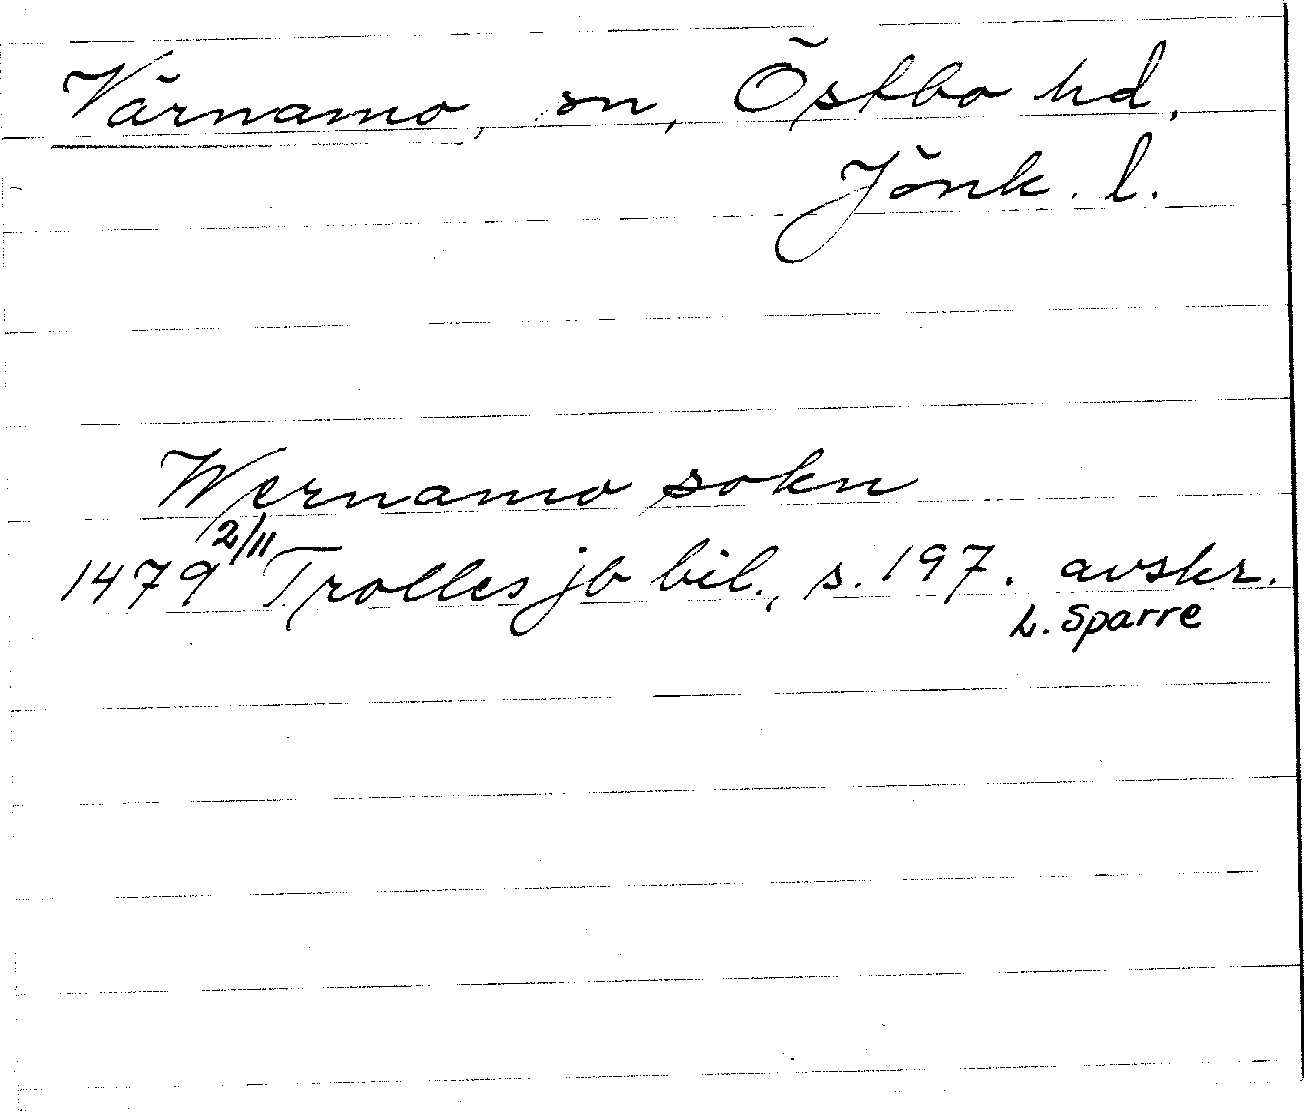 Värnamo, sn, Östbo hd,
Jönk. l.
Wernamo sokn
1479 2/11 Trolles jb bil., s. 197. avskr.
L. Sparre